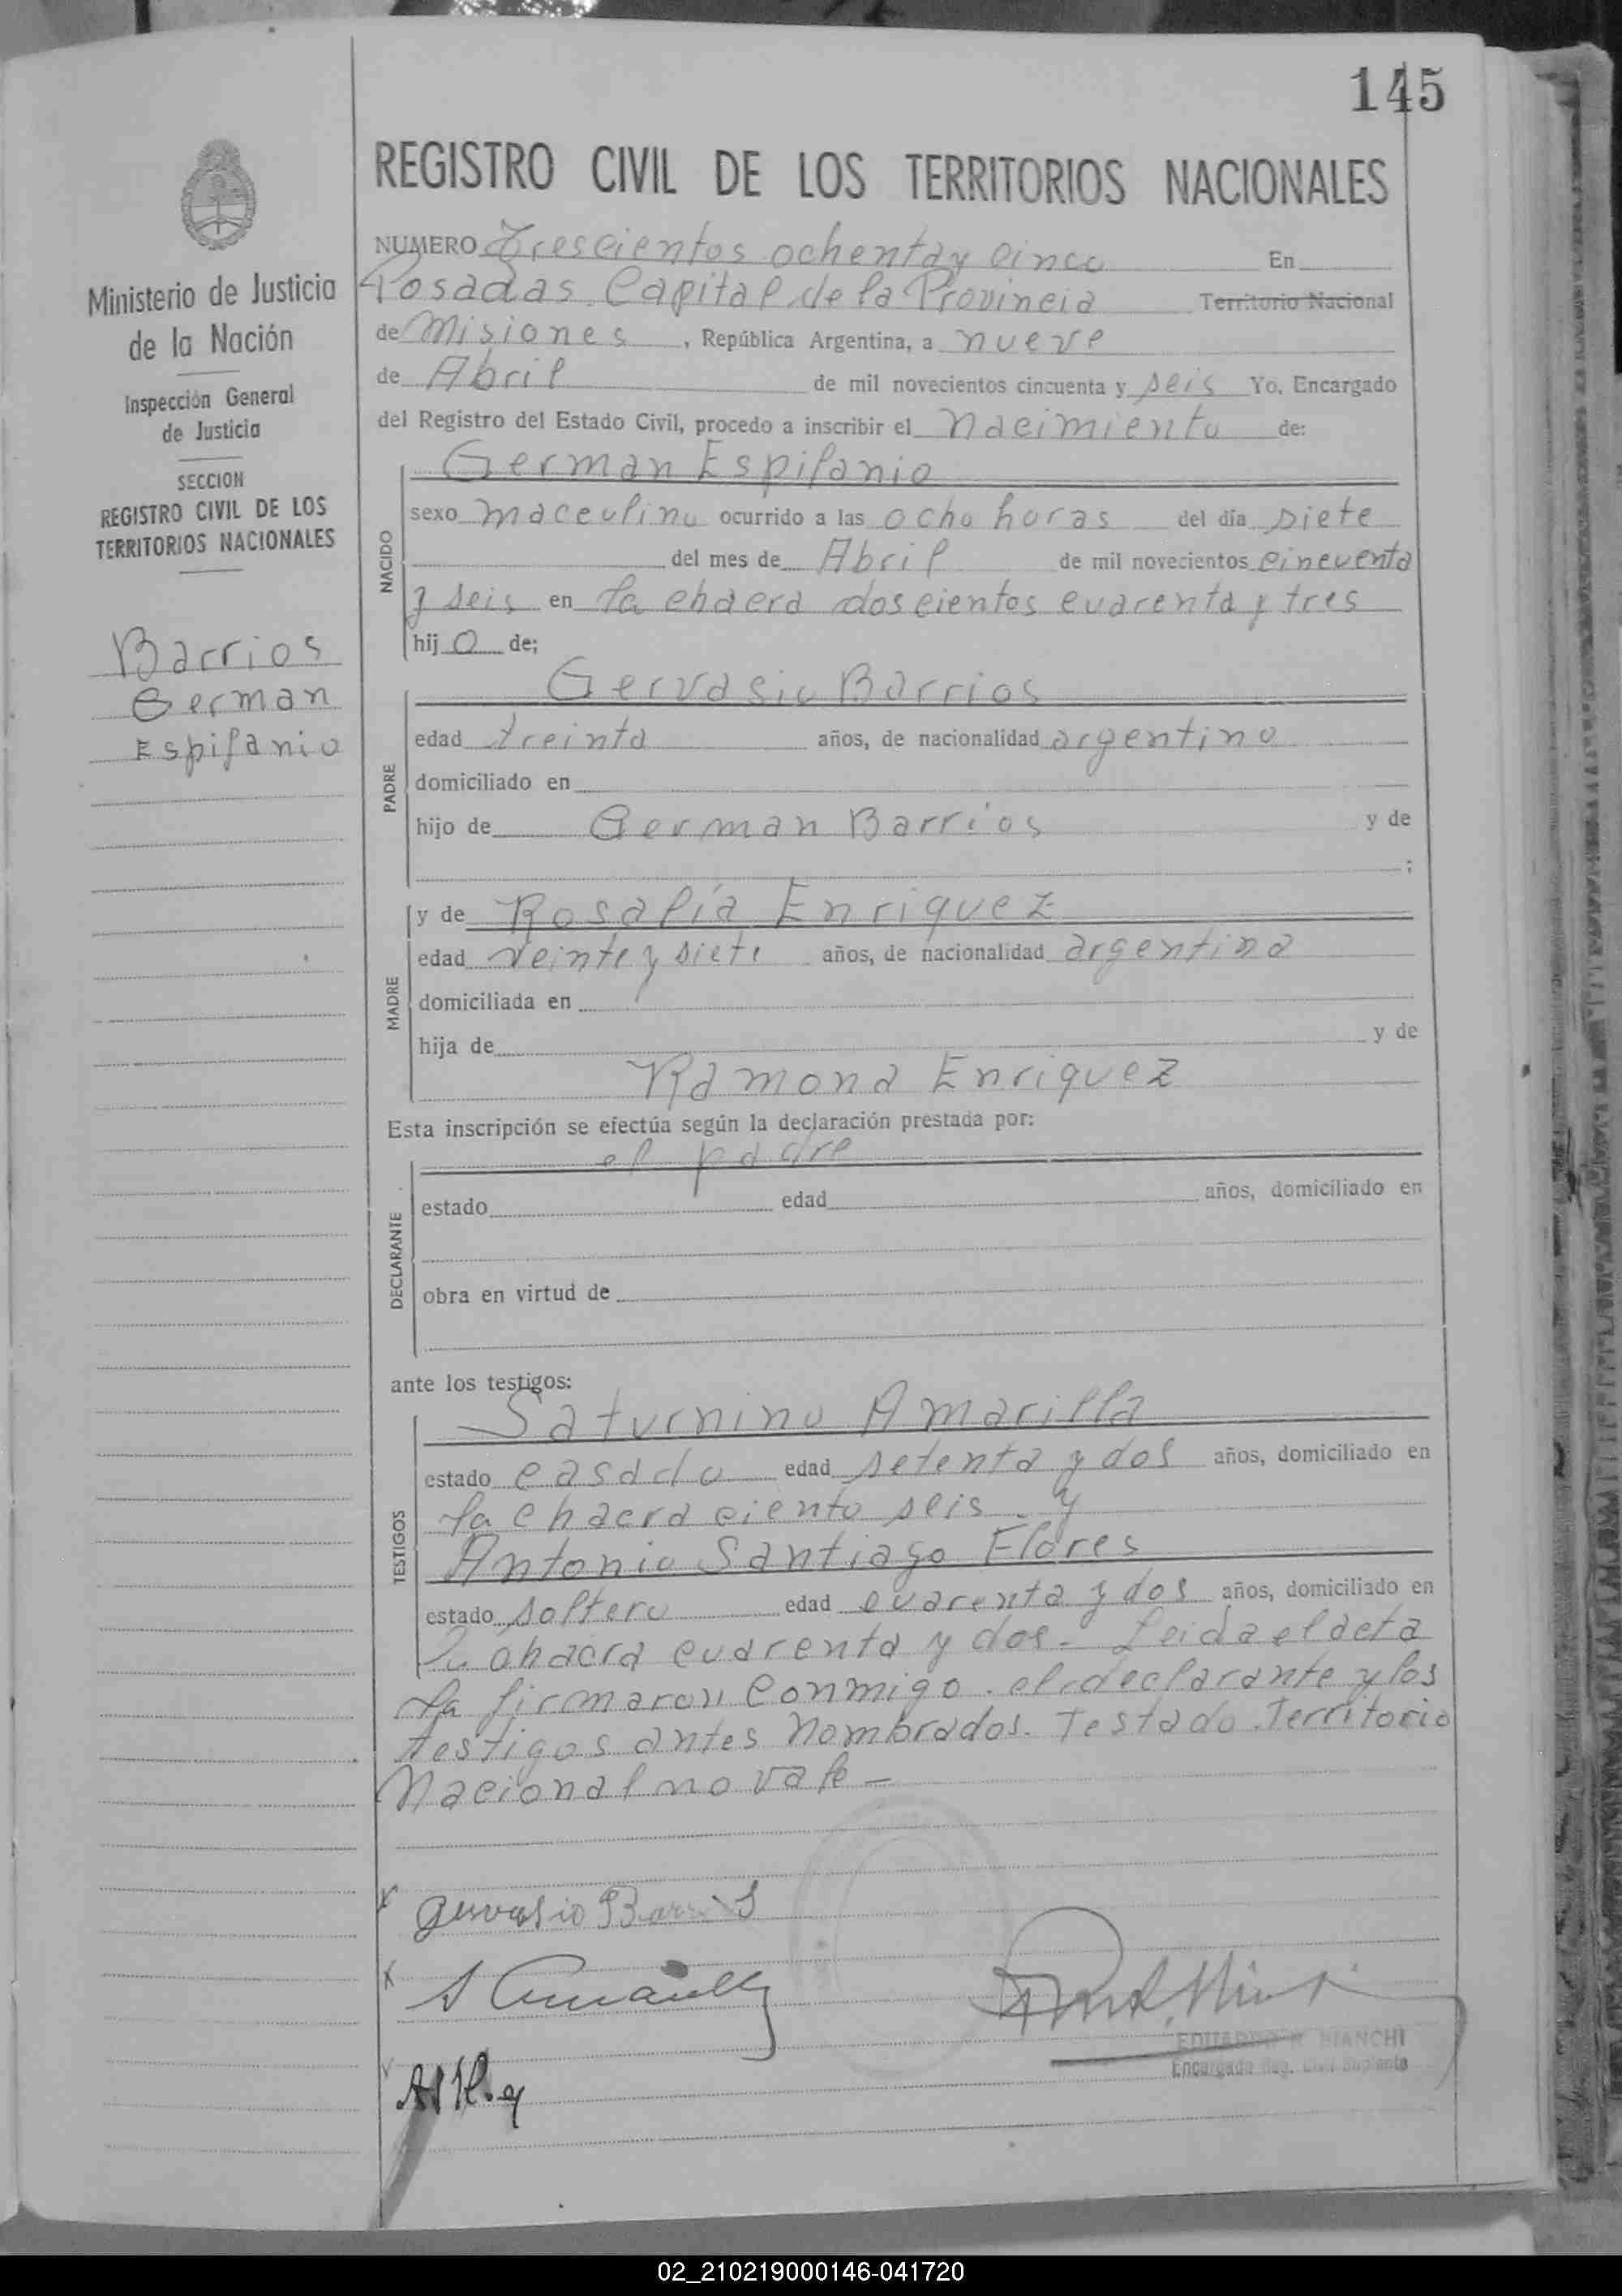 145
REGISTRO CIVIL DE LOS TERRITORIOS NACIONALES
Ministerio de Justicia
de la Nación
Inspección General
de Justicia
SECCION
REGISTRO CIVIL DE LOS
TERRITORIOS NACIONALES
Barrios
German
Espifanio
NUMERO Trescientos ochenta y cinco En
Posadas Capital de la Provincia Territorio Nacional
de Misiones, República Argentina, a nueve
de Abril de mil novecientos cincuenta y seis Yo, Encargado
del Registro del Estado Civil, procedo a inscribir el Nacimiento de:
NACIDO
German Espifanio
sexo masculino ocurrido a las ocho horas del día siete
del mes de Abril de mil novecientos cincuenta
y seis en la chacra doscientos cuarenta y tres
hijo de;
PADRE
Gervasio Barrios
edad treinta años, de nacionalidad argentino
domiciliado en
hijo de German Barrios y de
;
MADRE
y de Rosalía Enriquez
edad veinte y siete años, de nacionalidad argentina
domiciliada en
hija de y de
Ramona Enriquez
Esta inscripción se efectúa según la declaración prestada por:
DECLARANTE
el padre
estado edad años, domiciliado en
obra en virtud de
ante los testigos:
TESTIGOS
Saturnino Amarilla
estado casado edad setenta y dos años, domiciliado en
la chacra ciento seis. y
Antonio Santiago Flores
estado soltero edad cuarenta y dos años, domiciliado en
la chacra cuarenta y dos - Leida el acta
la firmaron conmigo. el declarante y los
testigos antes nombrados. Testado. Territorio
Nacional no vale -
x Gervasio Barrios
x S Amarilla
EDUARDO BIANCHI
Encargado Reg. Civil Suplente
02_210219000146-041720